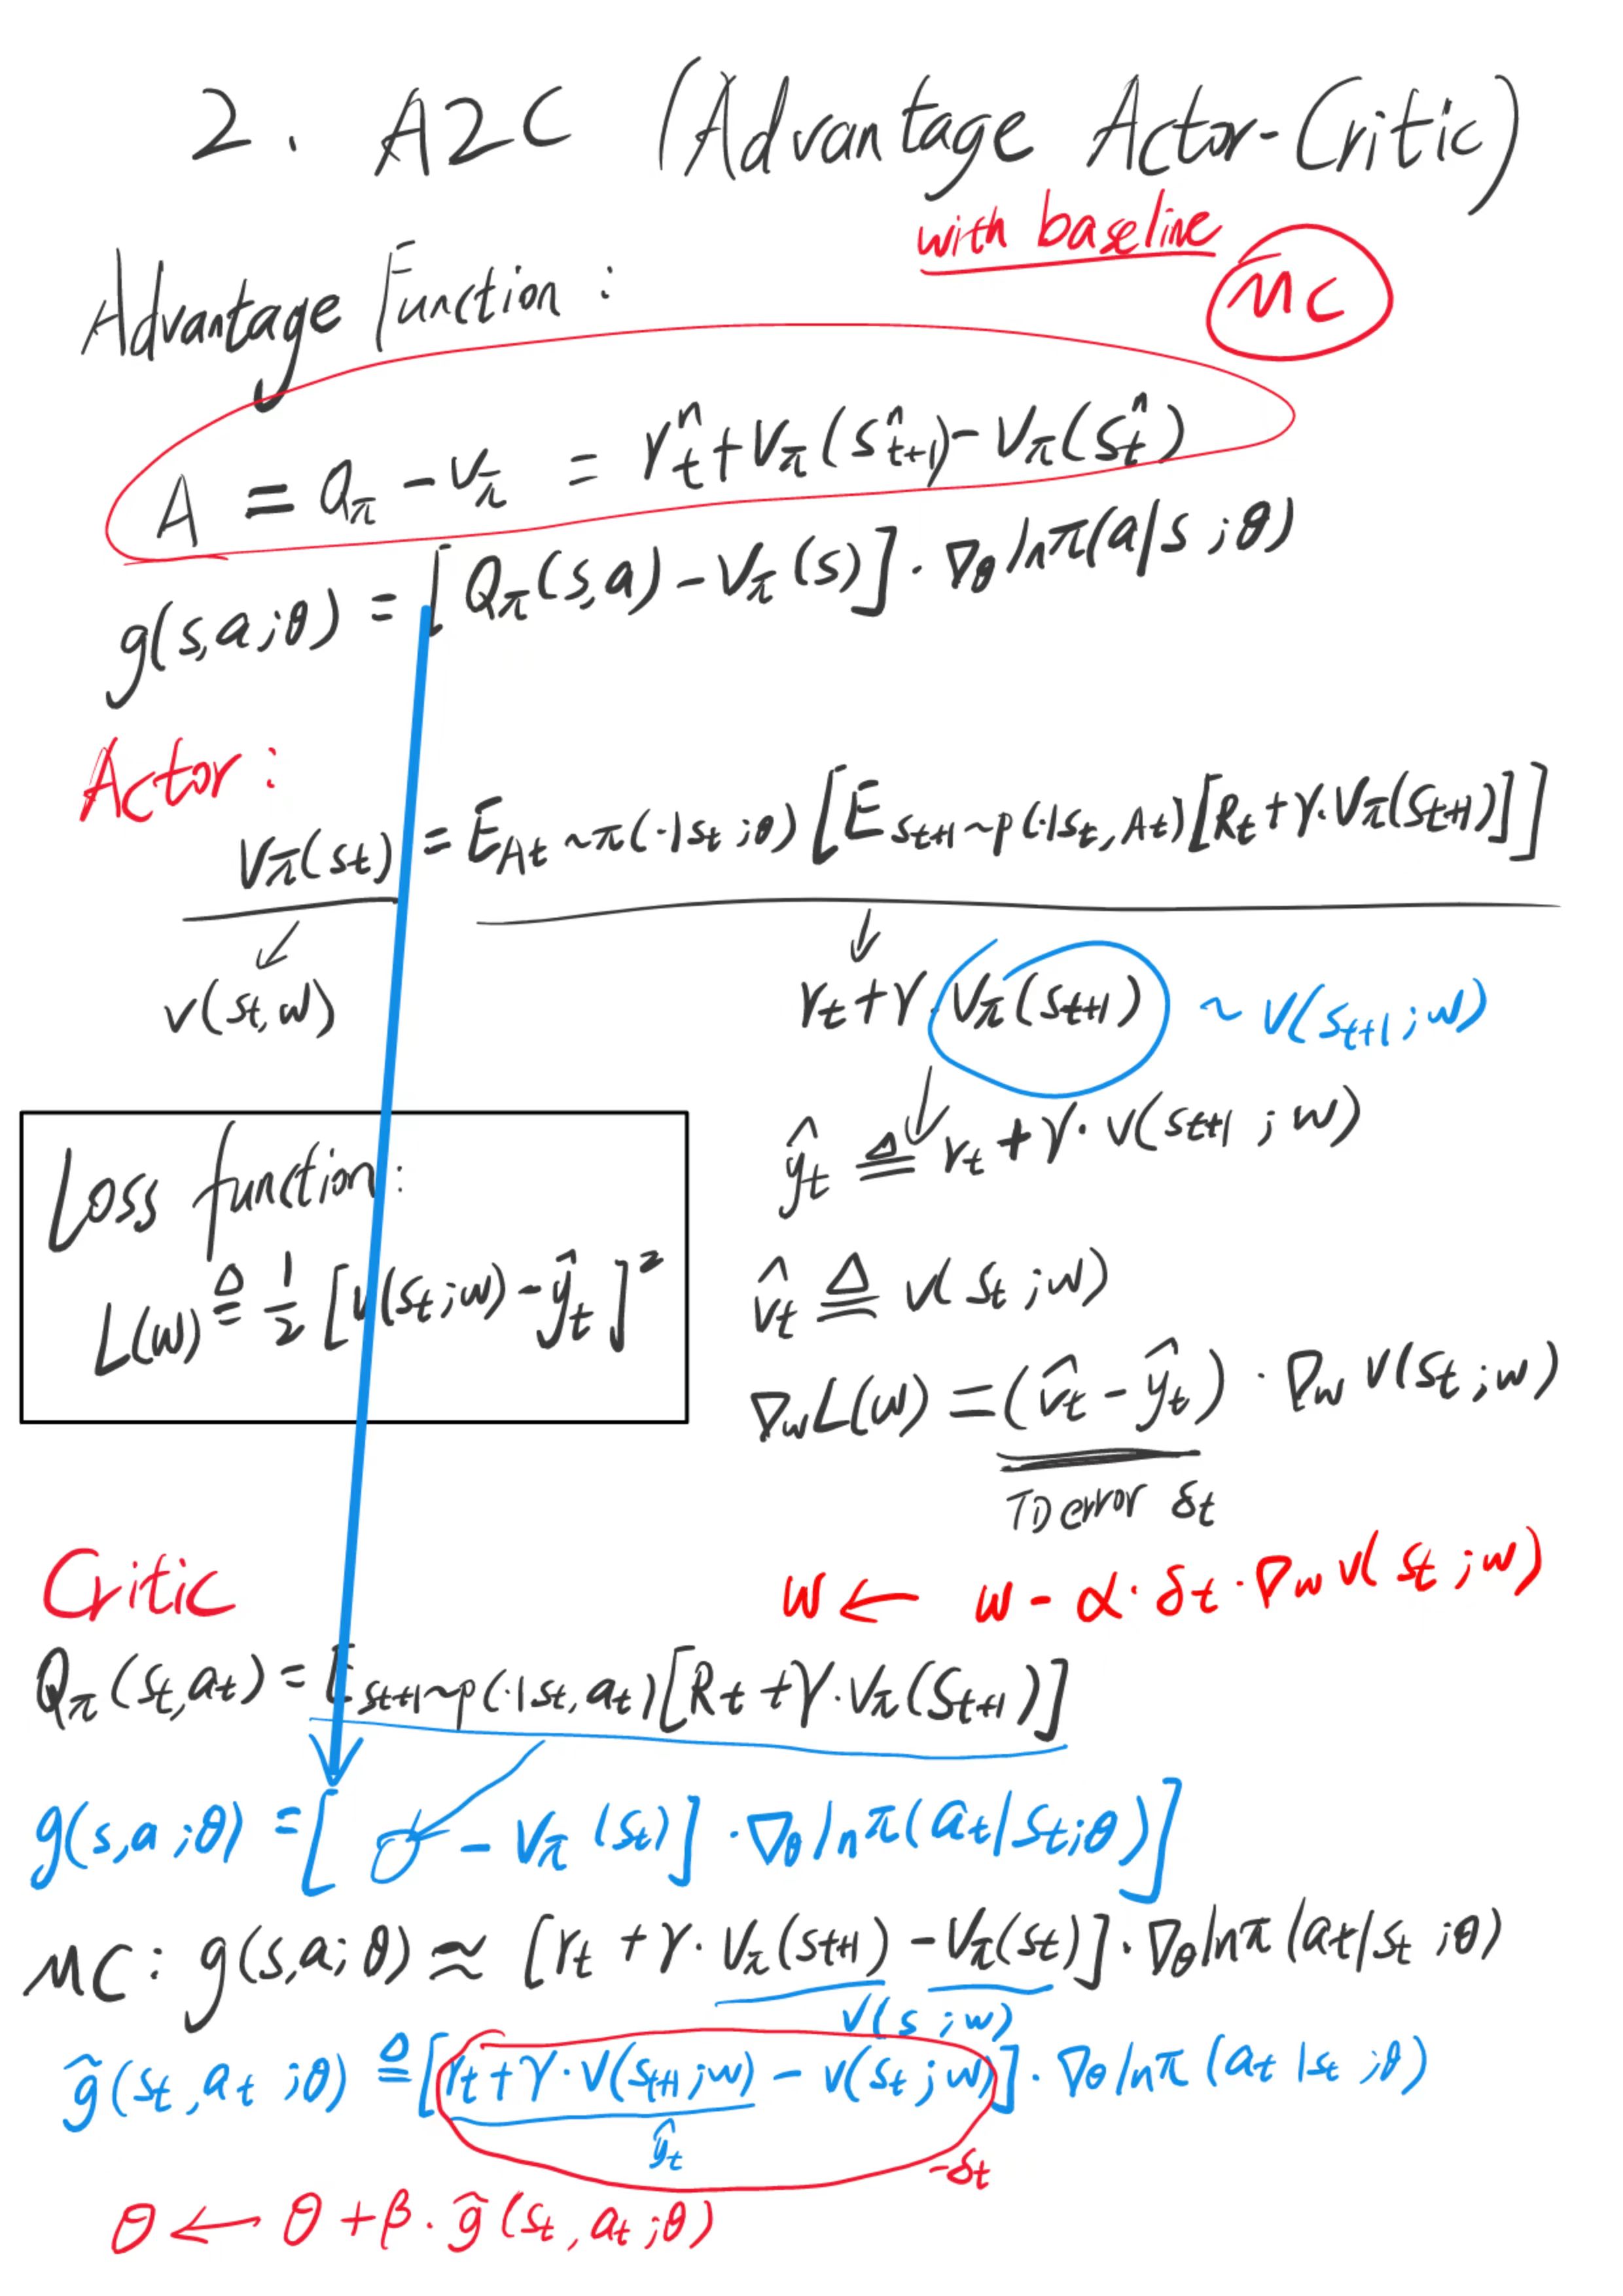 2. A2C (Advantage Actor-Critic)
with baseline
MC
Advantage Function :
A = Qπ - Vπ = r_t^n + Vπ(s_{t+1}^n) - Vπ(s_t^n)
g(s,a;θ) = [Qπ(s,a) - Vπ(s)] · ∇θ lnπ(a|s ;θ)
Actor :
Vπ(st) = E_{At ~ π(·|st ;θ)} [E_{St+1 ~ p(·|st, At)} [Rt + γ·Vπ(St+1)]]
↓ ↓
v(st, w)
rt + γ·Vπ(St+1) ~ v(st+1 ; w)
↓
ŷt ≜ rt + γ· v(st+1 ; w)
Loss function :
L(w) ≜ 1/2 [v(st;w) - ŷt]²
v̂t ≜ v(st ;w)
∇w L(w) = (v̂t - ŷt) · ∇w v(st ;w)
TD error δt
w ← w - α· δt · ∇w v(st ;w)
Critic
Qπ(st,at) = E_{st+1~p(·|st, at)} [Rt + γ·Vπ(St+1)]
g(s,a ;θ) = [ - Vπ(st)] ·∇θ lnπ(at|st;θ)]
MC: g(s,a; θ) ≈ [rt + γ· Vπ(st+1) - Vπ(st)] · ∇θ lnπ(at|st ;θ)
v(s ;w)
g̃(st, at ;θ) ≜ [rt + γ· v(st+1 ;w) - v(st ;w)] · ∇θ lnπ(at |st ;θ)
ŷt
-δt
θ ← θ + β· g̃(st, at ;θ)